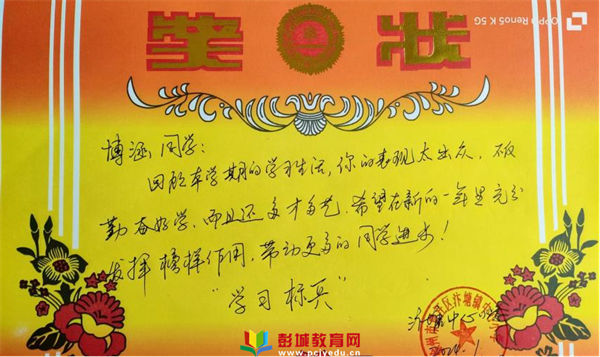 OPPO Reno5 K 5G
奖状
博涵同学：
回放本学期的学习生活，你的表现太出众，不仅
勤奋好学，而且还多才多艺，希望在新的一年里充分
发挥榜样作用，带动更多的同学进步！
“学习标兵”
中心
彭城教育网
www.pcjyedu.cn